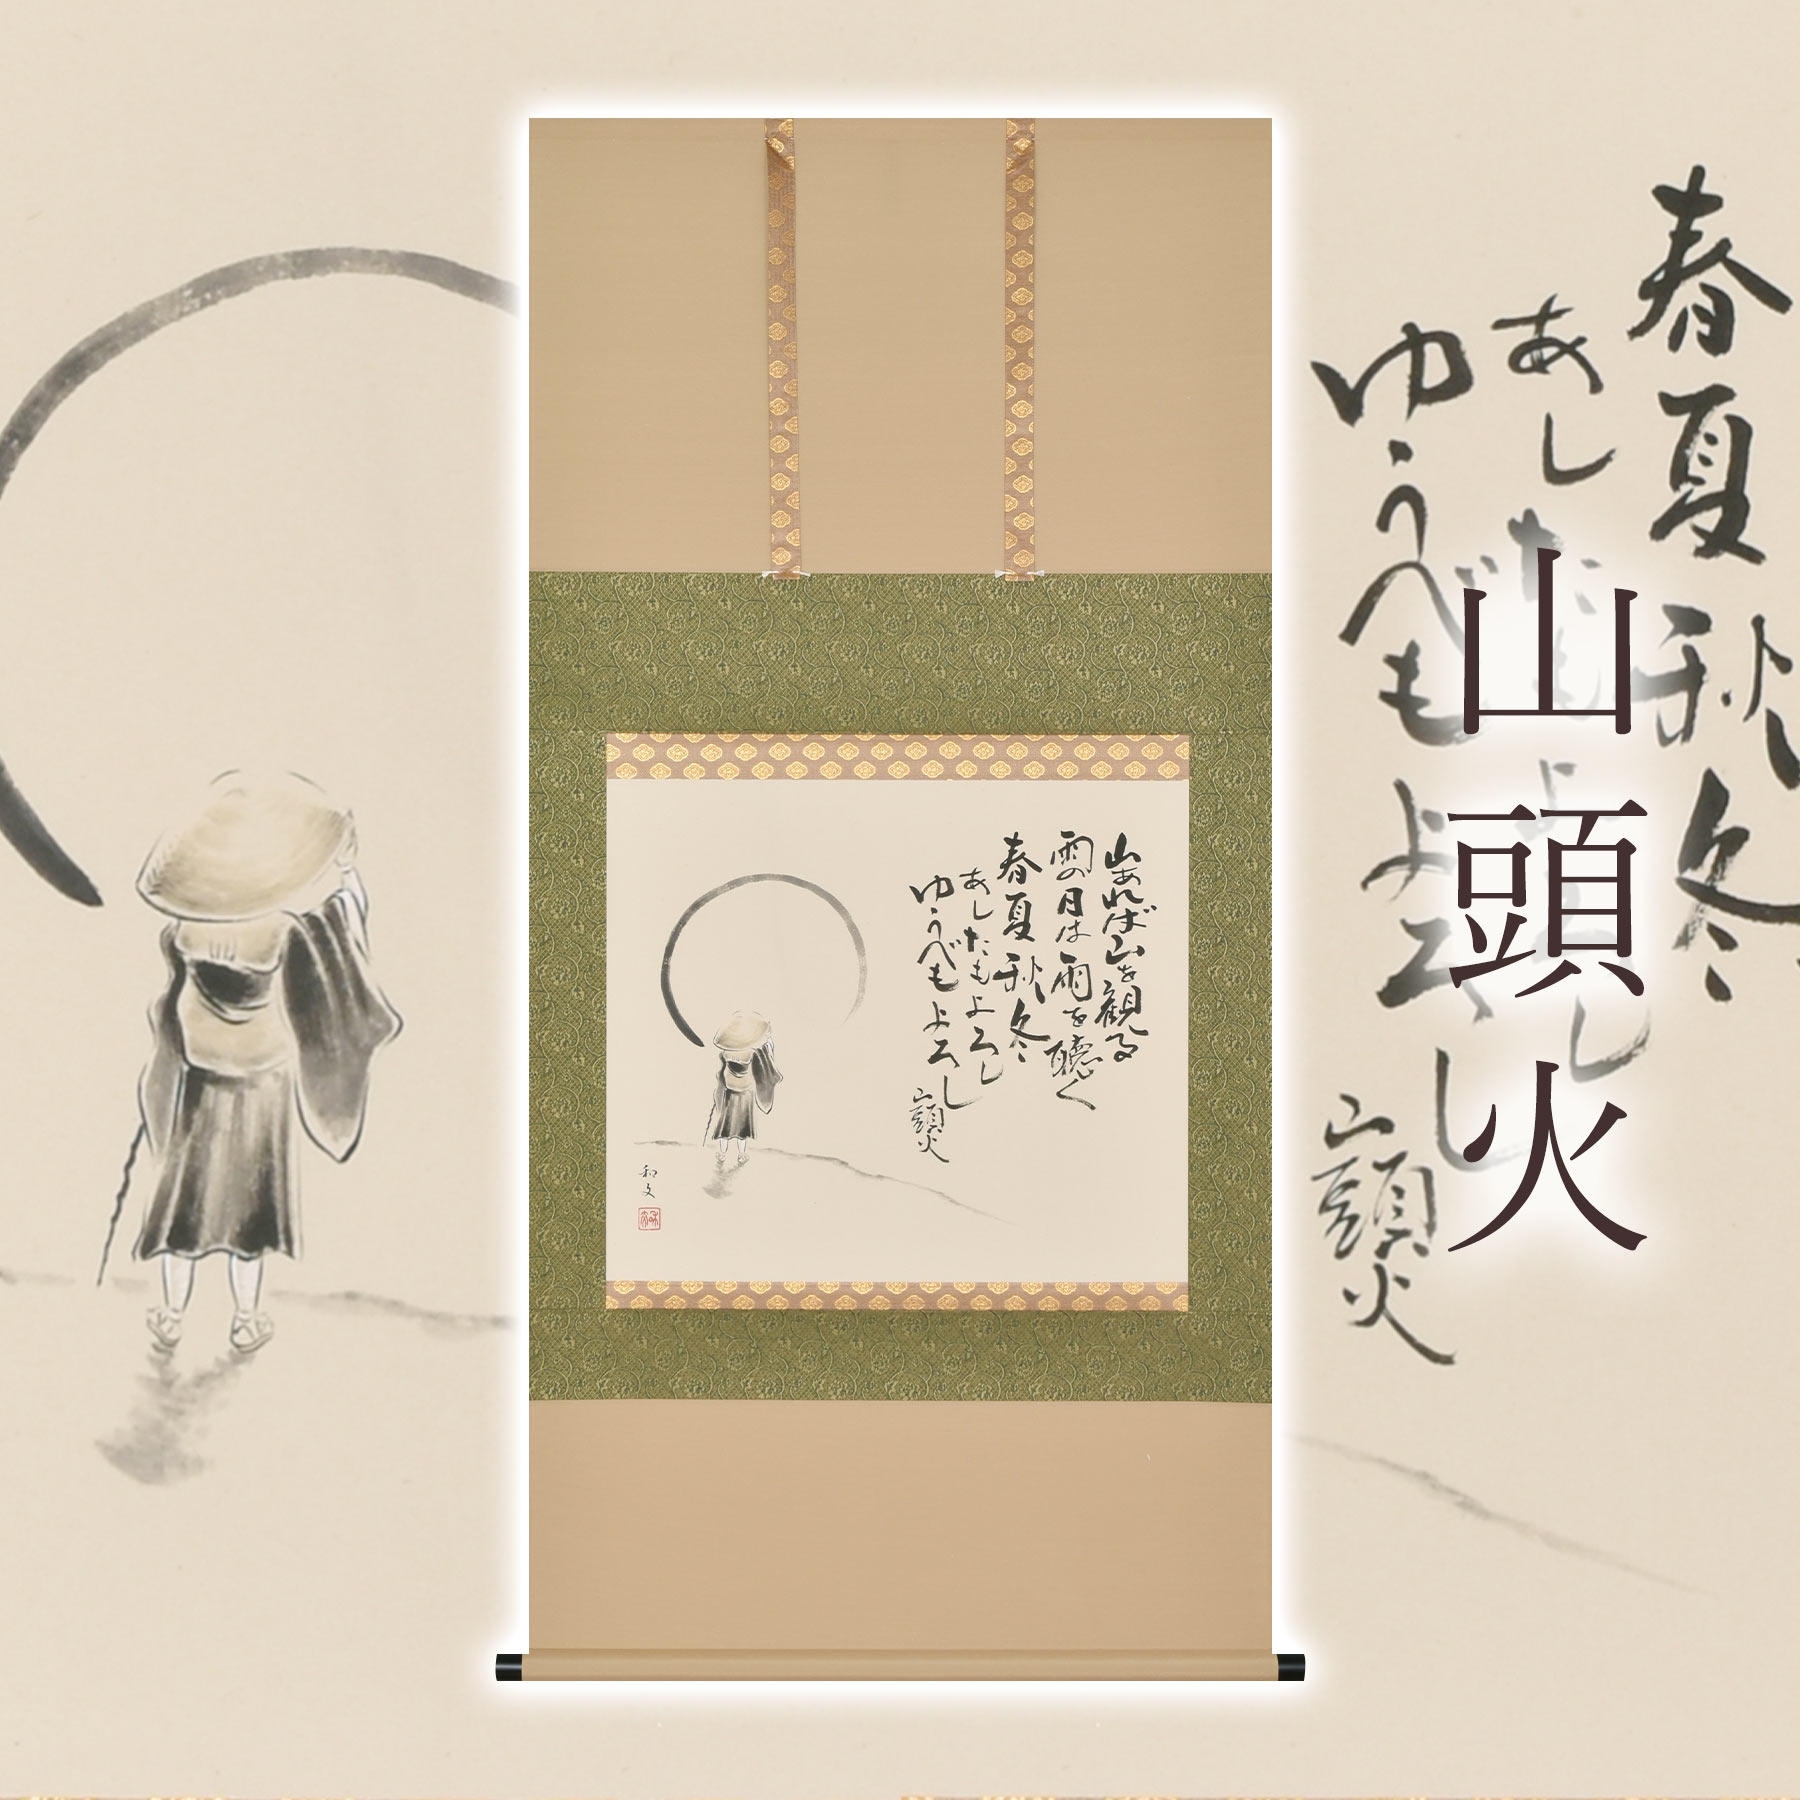 山頭火
山あれば山を観る
雨の日は雨を聴く
春夏秋冬
あしたもよろし
ゆうべもよろし
山頭火
和文
春夏秋冬
あしたもよろし
ゆうべもよろし
山頭火